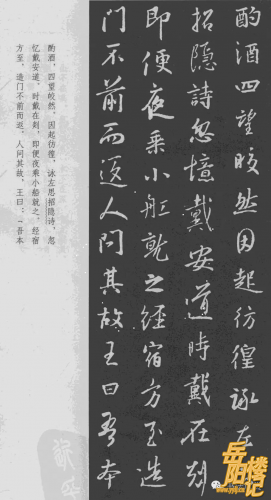 酌酒四望皎然因起彷徨詠左
招隱詩忽憶戴安道時戴在剡
即便夜乘小船就之經宿方至造
門不前而返人問其故王曰吾本
酌酒，四望皎然，因起彷徨，咏左思招隐诗，忽
忆戴安道，时戴在剡，即便夜乘小船就之，经宿
方至，造门不前而返，人问其故，王曰：“吾本
岳阳楼记